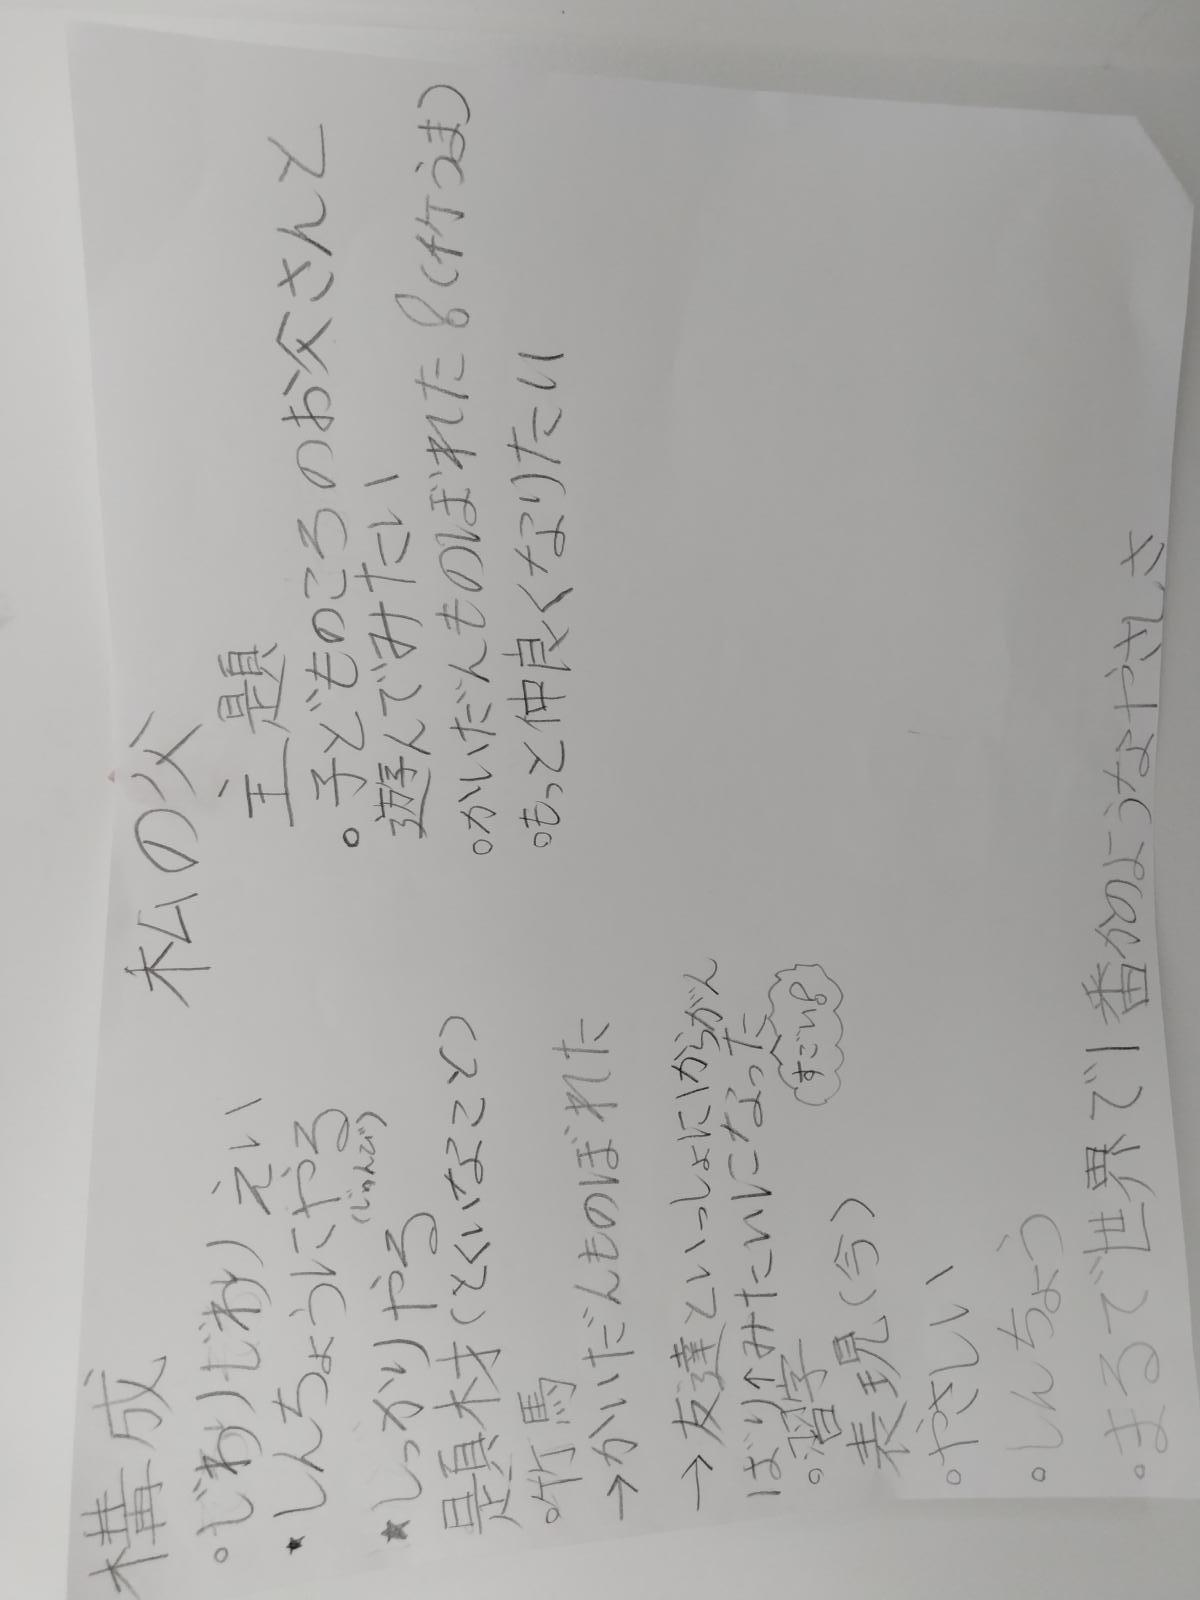 私の父
構成
。じわりじわり えい
★しんちょうにやる
(じゅんび)
★しっかりやる
題材(とくいなこと)
。竹馬
→かいだんものぼれた
→友達といっしょに1からがん
ばり↑みたいになった
すごい!
。習字
表現(今)
。やさしい
。しんちょう
。まるで世界で1番かのようなやさしさ
主題
。子どものころのお父さんと
遊んでみたい
。かいだんものぼれた!(竹うま)
。もっと仲良くなりたい